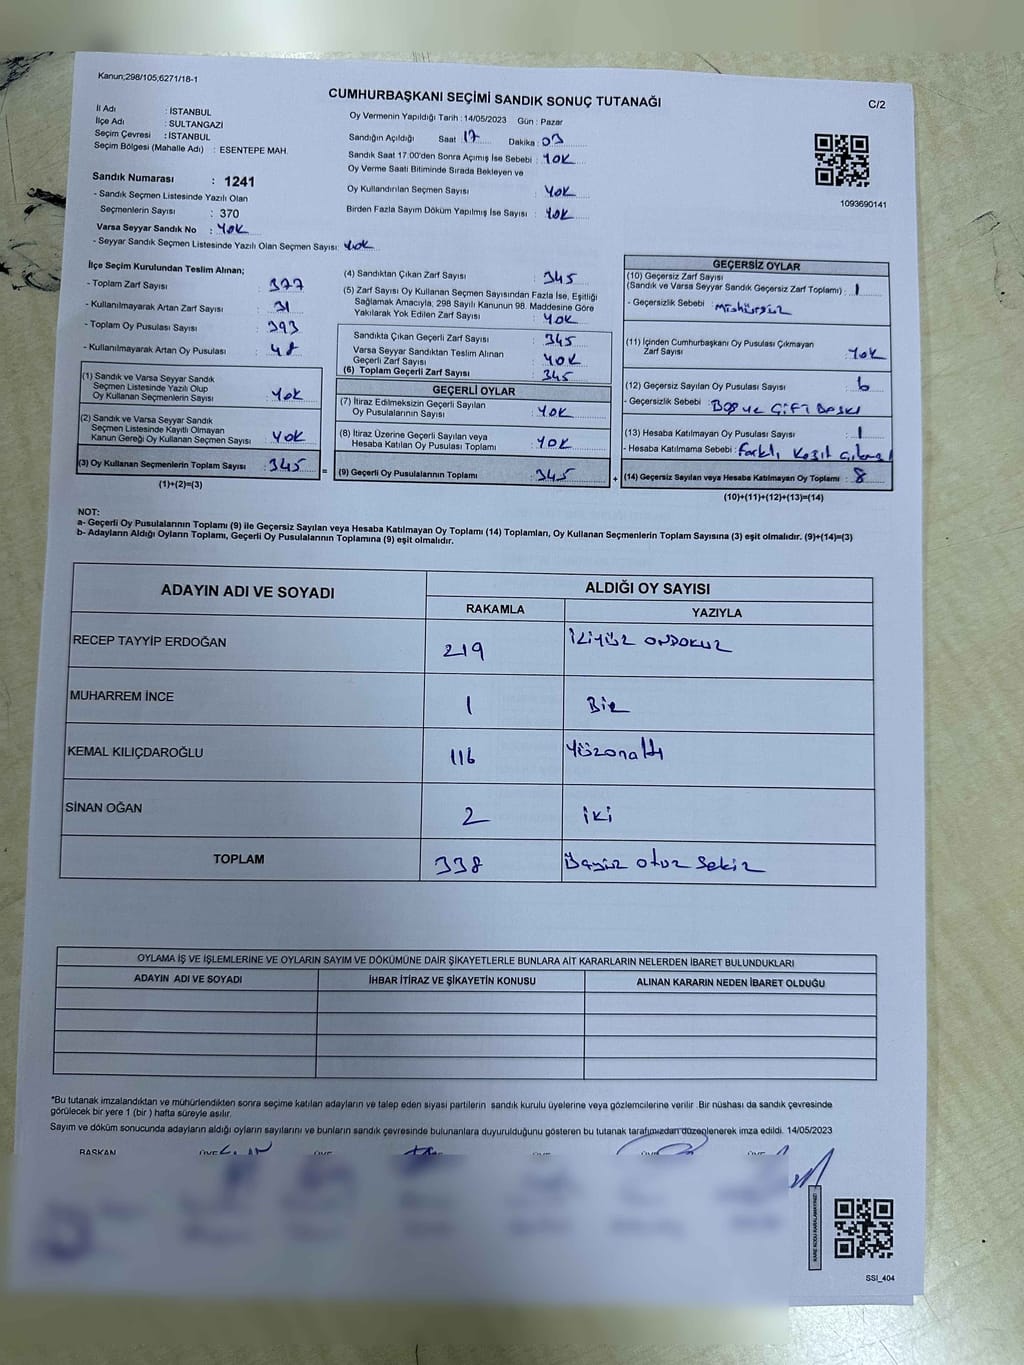 Kanun;298/105,6271/18-1
CUMHURBAŞKANI SEÇİMİ SANDIK SONUÇ TUTANAĞI
C/2
İl Adı : İSTANBUL
İlçe Adı : SULTANGAZİ
Seçim Çevresi : İSTANBUL
Seçim Bölgesi (Mahalle Adı) : ESENTEPE MAH.
Sandık Numarası : 1241
- Sandık Seçmen Listesinde Yazılı Olan
Seçmenlerin Sayısı : 370
Varsa Seyyar Sandık No : YOK
- Seyyar Sandık Seçmen Listesinde Yazılı Olan Seçmen Sayısı: YOK
Oy Vermenin Yapıldığı Tarih : 14/05/2023 Gün : Pazar
Sandığın Açıldığı Saat 17 Dakika : 03
Sandık Saat 17:00'den Sonra Açımış İse Sebebi : YOK
Oy Verme Saati Bitiminde Sırada Bekleyen ve
Oy Kullandırılan Seçmen Sayısı : YOK
Birden Fazla Sayım Döküm Yapılmış İse Sayısı : YOK
1093690141
İlçe Seçim Kurulundan Teslim Alınan;
- Toplam Zarf Sayısı : 377
- Kullanılmayarak Artan Zarf Sayısı : 31
- Toplam Oy Pusulası Sayısı : 393
- Kullanılmayarak Artan Oy Pusulası : 48
(1) Sandık ve Varsa Seyyar Sandık
Seçmen Listesinde Yazılı Olup
Oy Kullanan Seçmenlerin Sayısı : YOK
(2) Sandık ve Varsa Seyyar Sandık
Seçmen Listesinde Kayıtlı Olmayan
Kanun Gereği Oy Kullanan Seçmen Sayısı : YOK
(3) Oy Kullanan Seçmenlerin Toplam Sayısı : 345
(1)+(2)=(3)
=
(4) Sandıktan Çıkan Zarf Sayısı : 345
(5) Zarf Sayısı Oy Kullanan Seçmen Sayısından Fazla İse, Eşitliği
Sağlamak Amacıyla, 298 Sayılı Kanunun 98. Maddesine Göre
Yakılarak Yok Edilen Zarf Sayısı : YOK
Sandıkta Çıkan Geçerli Zarf Sayısı : 345
Varsa Seyyar Sandıktan Teslim Alınan
Geçerli Zarf Sayısı : YOK
(6) Toplam Geçerli Zarf Sayısı : 345
GEÇERLİ OYLAR
(7) İtiraz Edilmeksizin Geçerli Sayılan
Oy Pusulalarının Sayısı : YOK
(8) İtiraz Üzerine Geçerli Sayılan veya
Hesaba Katılan Oy Pusulası Toplamı : YOK
(9) Geçerli Oy Pusulalarının Toplamı : 345
+
GEÇERSİZ OYLAR
(10) Geçersiz Zarf Sayısı
(Sandık ve Varsa Seyyar Sandık Geçersiz Zarf Toplamı) : 1
- Geçersizlik Sebebi : Mühürsüz
(11) İçinden Cumhurbaşkanı Oy Pusulası Çıkmayan
Zarf Sayısı : YOK
(12) Geçersiz Sayılan Oy Pusulası Sayısı : 6
- Geçersizlik Sebebi : BOŞ VE ÇİFT BASKI
(13) Hesaba Katılmayan Oy Pusulası Sayısı : 1
- Hesaba Katılmama Sebebi : Farklı
(14) Geçersiz Sayılan veya Hesaba Katılmayan Oy Toplamı : 8
(10)+(11)+(12)+(13)=(14)
NOT:
a- Geçerli Oy Pusulalarının Toplamı (9) ile Geçersiz Sayılan veya Hesaba Katılmayan Oy Toplamı (14) Toplamları, Oy Kullanan Seçmenlerin Toplam Sayısına (3) eşit olmalıdır. (9)+(14)=(3)
b- Adayların Aldığı Oyların Toplamı, Geçerli Oy Pusulalarının Toplamına (9) eşit olmalıdır.
ADAYIN ADI VE SOYADI
ALDIĞI OY SAYISI
RAKAMLA YAZIYLA
RECEP TAYYİP ERDOĞAN 219 İKİYÜZ ONDOKUZ
MUHARREM İNCE 1 BİR
KEMAL KILIÇDAROĞLU 116 Yüzonaltı
SİNAN OĞAN 2 iki
TOPLAM 338 Üçyüz otuz sekiz
OYLAMA İŞ VE İŞLEMLERİNE VE OYLARIN SAYIM VE DÖKÜMÜNE DAİR ŞİKAYETLERLE BUNLARA AİT KARARLARIN NELERDEN İBARET BULUNDUKLARI
ADAYIN ADI VE SOYADI İHBAR İTİRAZ VE ŞİKAYETİN KONUSU ALINAN KARARIN NEDEN İBARET OLDUĞU
*Bu tutanak imzalandıktan ve mühürlendikten sonra seçime katılan adayların ve talep eden siyasi partilerin sandık kurulu üyelerine veya gözlemcilerine verilir. Bir nüshası da sandık çevresinde
görülecek bir yere 1 (bir ) hafta süreyle asılır.
Sayım ve döküm sonucunda adayların aldığı oyların sayılarını ve bunların sandık çevresinde bulunanlara duyurulduğunu gösteren bu tutanak tarafımızdan düzenlenerek imza edildi. 14/05/2023
BAŞKAN ÜYE ÜYE ÜYE ÜYE
SSI_404